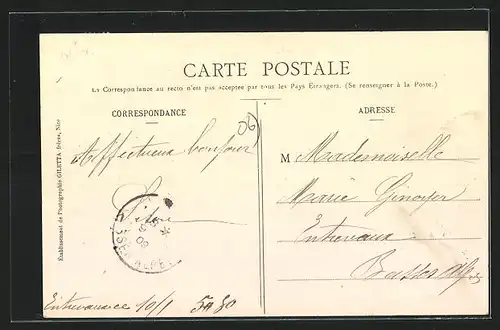 CARTE POSTALE
La Correspondance au recto n'est pas acceptée par tous les Pays Etrangers. (Se renseigner à la Poste.)
CORRESPONDANCE
ADRESSE
Etablissement de Photographie GILETTA frères, Nice
06
Affectueux bonjour
M Mademoiselle
Marie
Entrevaux
Basses Alpes
09
SSES ALPES
10/1